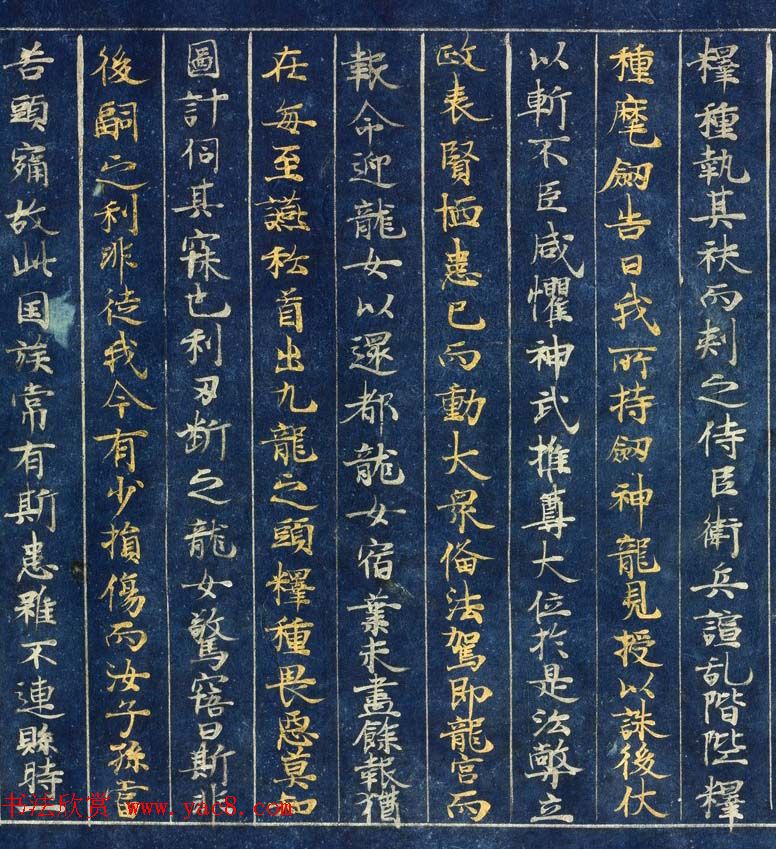 釋種執其袂而刾之侍臣衛兵諠乱階陛釋
種麾劔告曰我所持劔神龍見授以誅後伏
以斬不臣咸懼神武推尊大位於是沿弊立
政表賢恤患已而動大眾俻法駕即龍宮而
報命迎龍女以還都龍女宿業未盡餘報猶
在每至讌私首出九龍之頭釋種畏惡莫知
圖計伺其寐也利刃断之龍女驚寤曰斯非
後嗣之利非徒我今有少損傷而汝子孫當
苦頭痛故此国族常有斯患雖不連緜時
书法欣赏 www.yac8.com